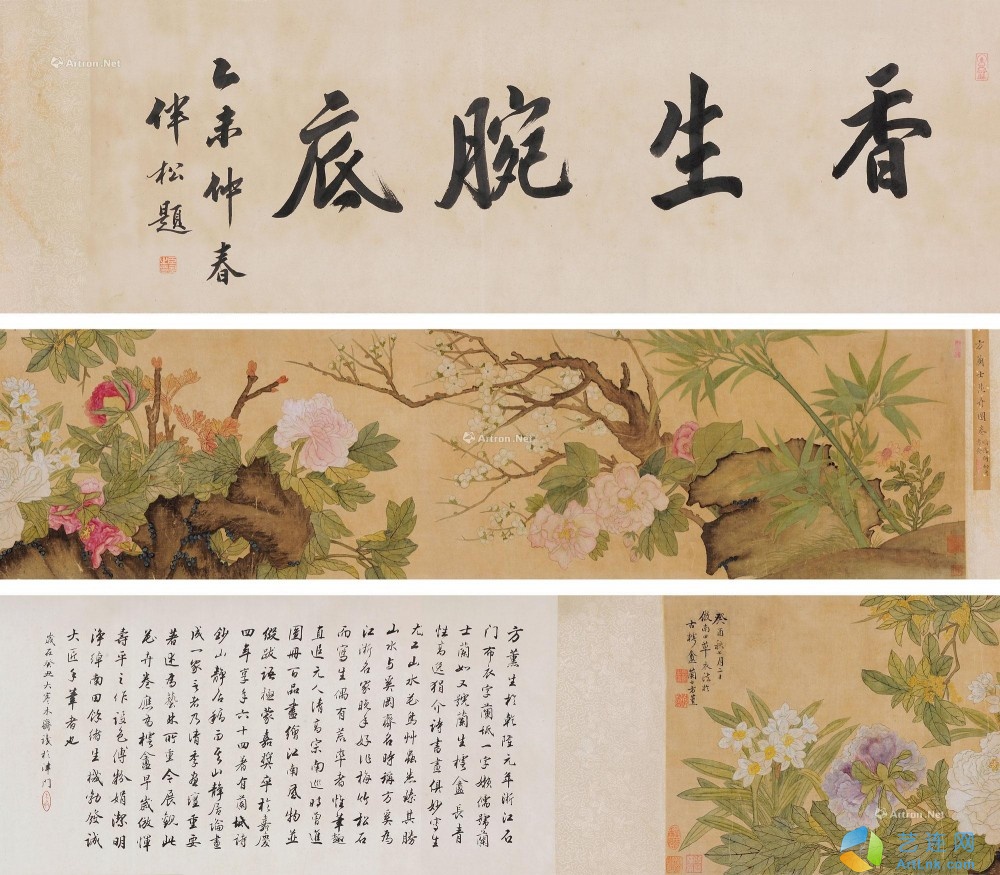 香生腕底
乙未仲春
伴松題
方蘭士花卉圖卷
癸酉秋七月二十
倣南田草衣法於
古樗盦 蘭士方薰
方薰生於乾隆元年浙江石
門布衣字蘭坻一字嬾儒號蘭
士蘭如又號蘭生樗盦長青
性高逸狷介詩書畫俱妙寫生
尤工山水花鳥草蟲悉臻其勝
山水與奚岡齋名時稱方奚為
江浙名家晚年好作梅竹松石
而寫生偶有荒率者惟筆趣
直追元人清高宗南巡時曾進
圖冊百品盡繪江南風物並
做跋語極蒙嘉獎卒於嘉慶
四年享年六十四著有蘭坻詩
鈔山靜居稿而其山靜居論畫
成一家言者乃清季畫壇重要
著述為藝林所重今展觀此
花卉卷應為樗盦早歲倣惲
壽平之作設色傅粉娟潔明
淨得南田餘緒生機勃發誠
大匠手筆者也
歲在癸丑大寒 於津門
Artron.Net
Artron.Net
Artron.Net